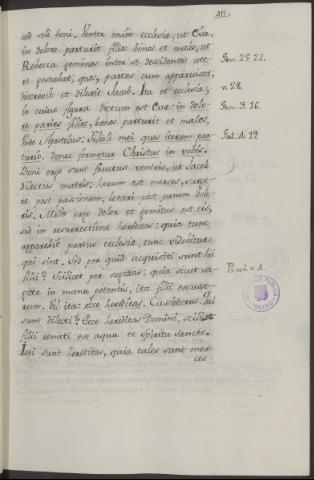 415.
sed soli boni. Venter enim ecclesia, ut Eva,
in dolore parturit filios bonos et malos, ut
Rebecca geminos inter se dissidentes ute-
ro gestabat; quos, partus cum apparuisset,
discrevit et dilexit Jacob. Ita et ecclesia;
in cuius figura dictum est Eva: in dolo-
re paries filios, bonos parturit et malos.
Unde Apostolus: Filioli mei quos iterum par-
turio, donec formetur Christus in vobis.
Boni ergo sunt fructus ventris, ut Jacob
dilectus matris: horum est merces, surge-
re post passionem, letari post panem dolo-
ris. Modo ergo dolor et gemitus est eis,
sed in resurrectione hereditas: quia tunc
apparebit partus ecclesia, tunc videbitur
qui sint. Sed per quid acquisiti sunt hii
filii? Scilicet per sagittas; quia sicut sa-
gitta in manu potentis, ita filii excusso-
rum. Vel ita: ecce hereditas. Cassiodorus. Qui
sunt dilecti? Ecce hereditas Domini, scilicet
filii renati ex aqua et Spiritu Sancto.
Isti sunt hereditas, quia tales sunt mer-
ces
Gen. 25. 22.
v. 28.
Gen. 3. 16.
Gal. 4. 19.